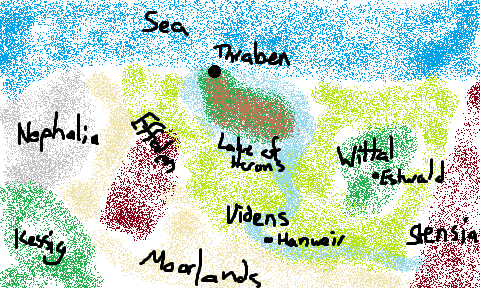 Sea
Thraben
Nephalia
Lake of
Herons
Wittal
Estwald
Videns
Hanweir
Stensia
Kessig
Moorlands